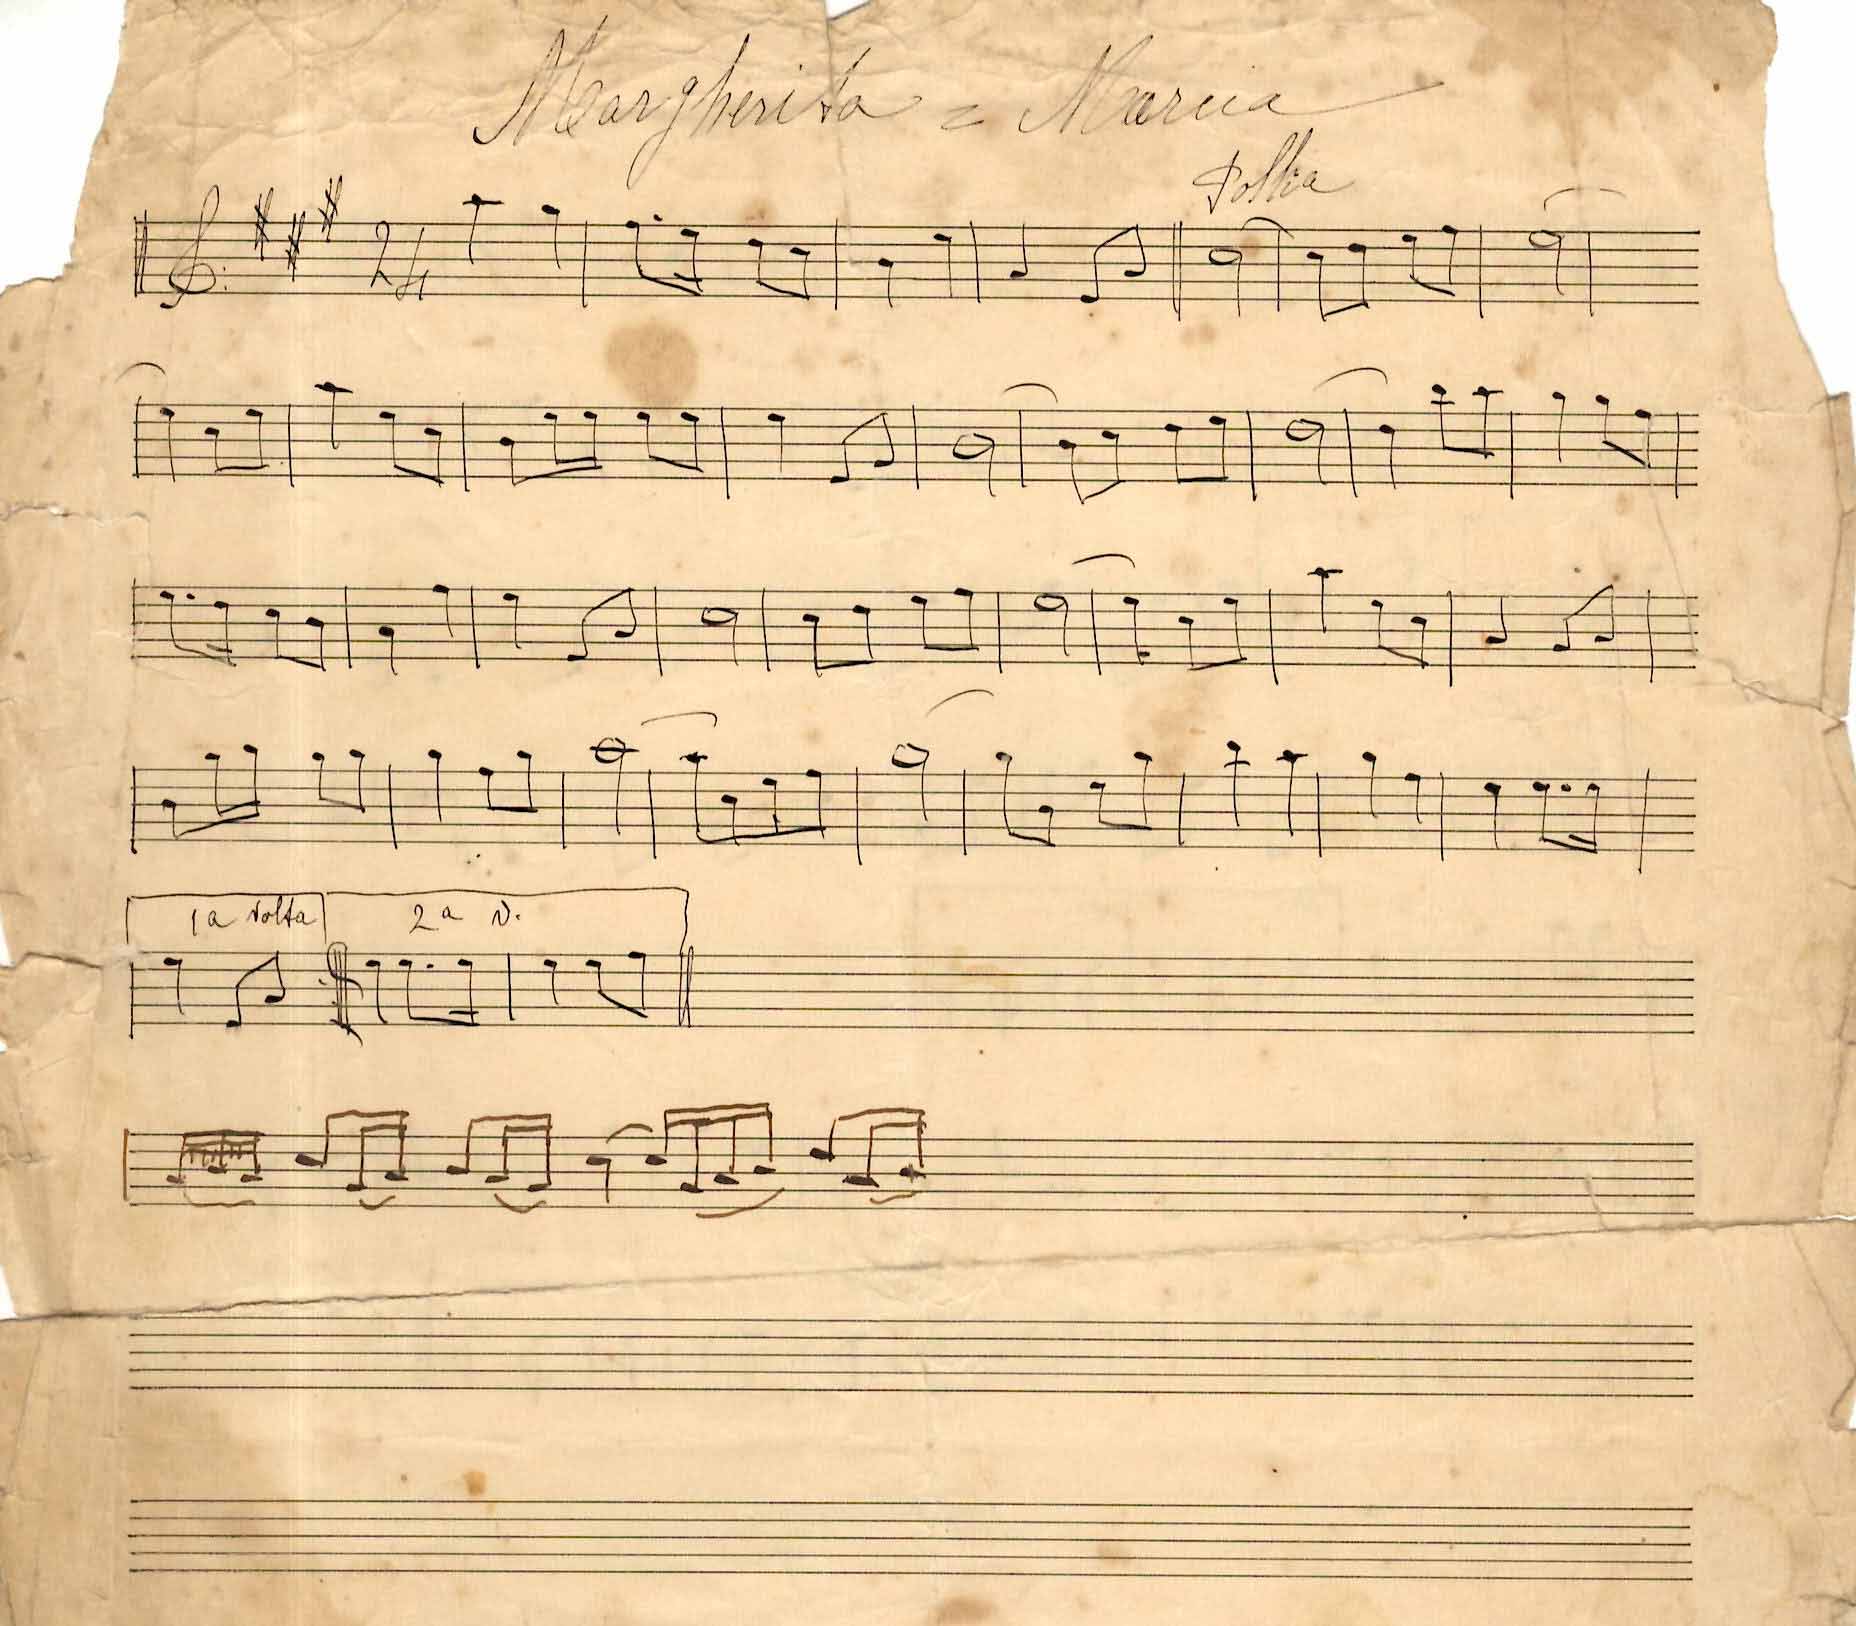 Margherita = Marcia
Polka
2 4
1a volta 2a v.